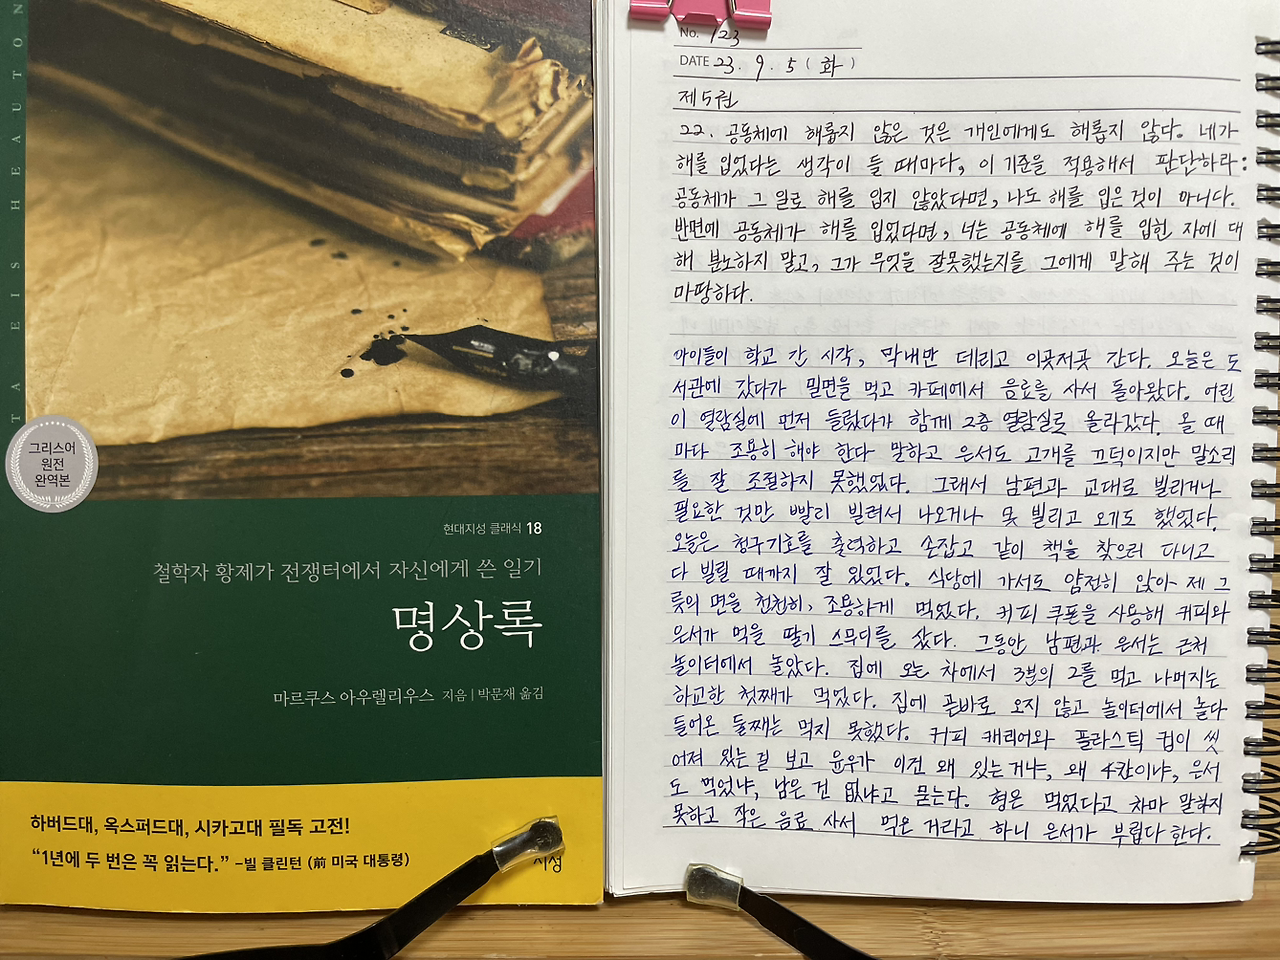 TA EIS HEAUTON
그리스어
원전
완역본
현대지성 클래식 18
철학자 황제가 전쟁터에서 자신에게 쓴 일기
명상록
마르쿠스 아우렐리우스 지음 | 박문재 옮김
하버드대, 옥스퍼드대, 시카고대 필독 고전!
“1년에 두 번은 꼭 읽는다.” –빌 클린턴 (前 미국 대통령)
지성
No. 123
DATE 23. 9. 5 (화)
제5권
22. 공동체에 해롭지 않은 것은 개인에게도 해롭지 않다. 네가
해를 입었다는 생각이 들 때마다, 이 기준을 적용해서 판단하라:
공동체가 그 일로 해를 입지 않았다면, 나도 해를 입은 것이 아니다.
반면에 공동체가 해를 입었다면, 너는 공동체에 해를 입힌 자에 대
해 분노하지 말고, 그가 무엇을 잘못했는지를 그에게 말해 주는 것이
마땅하다.
아이들이 학교 간 시각, 막내만 데리고 이곳저곳 간다. 오늘은 도
서관에 갔다가 밀면을 먹고 카페에서 음료를 사서 돌아왔다. 어린
이 열람실에 먼저 들렀다가 함께 2층 열람실로 올라갔다. 올 때
마다 조용히 해야 한다 말하고 은서도 고개를 끄덕이지만 말소리
를 잘 조절하지 못했었다. 그래서 남편과 교대로 빌리거나
필요한 것만 빨리 빌려서 나오거나 못 빌리고 오기도 했었다.
오늘은 청구기호를 출력하고 손잡고 같이 책을 찾으러 다니고
다 빌릴 때까지 잘 있었다. 식당에 가서도 얌전히 앉아 제 그
릇의 면을 천천히, 조용하게 먹었다. 커피 쿠폰을 사용해 커피와
은서가 먹을 딸기 스무디를 샀다. 그동안 남편과 은서는 근처
놀이터에서 놀았다. 집에 오는 차에서 3분의 2를 먹고 나머지는
하교한 첫째가 먹었다. 집에 곧바로 오지 않고 놀이터에서 놀다
들어온 둘째는 먹지 못했다. 커피 캐리어와 플라스틱 컵이 씻
어져 있는 걸 보고 윤우가 이건 왜 있는거냐, 왜 4칸이냐, 은서
도 먹었냐, 남은 건 없냐고 묻는다. 형은 먹었다고 차마 말하지
못하고 작은 음료 사서 먹은 거라고 하니 은서가 부럽다 한다.